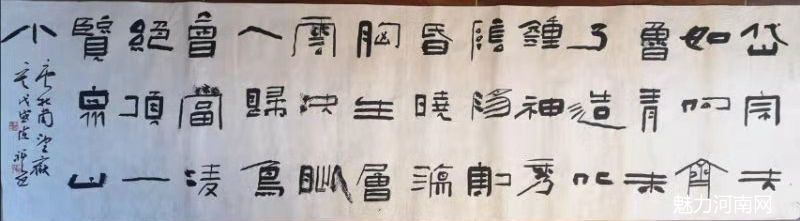 岱宗夫
如何齊
魯青未
了造化
鍾神秀
陰陽割
昏曉蕩
胸生層
雲決眥
入歸鳥
會當凌
絕頂一
覽眾山
小
唐杜甫望嶽
魅力河南网